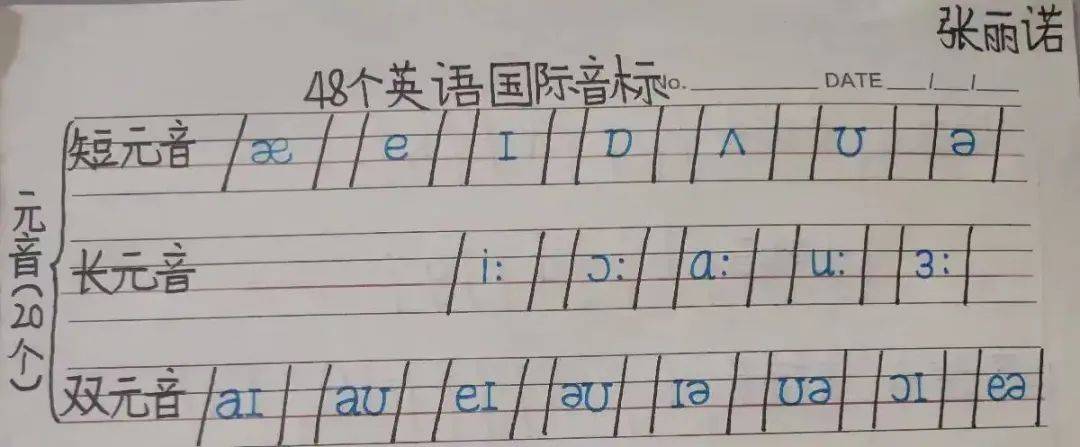 张丽诺
48个英语国际音标 No. DATE / /
元音(20个)
短元音 /æ/ /e/ /ɪ/ /ɒ/ /ʌ/ /ʊ/ /ə/
长元音 /i:/ /ɔ:/ /ɑ:/ /u:/ /ɜ:/
双元音 /aɪ/ /aʊ/ /eɪ/ /əʊ/ /ɪə/ /ʊə/ /ɔɪ/ /eə/